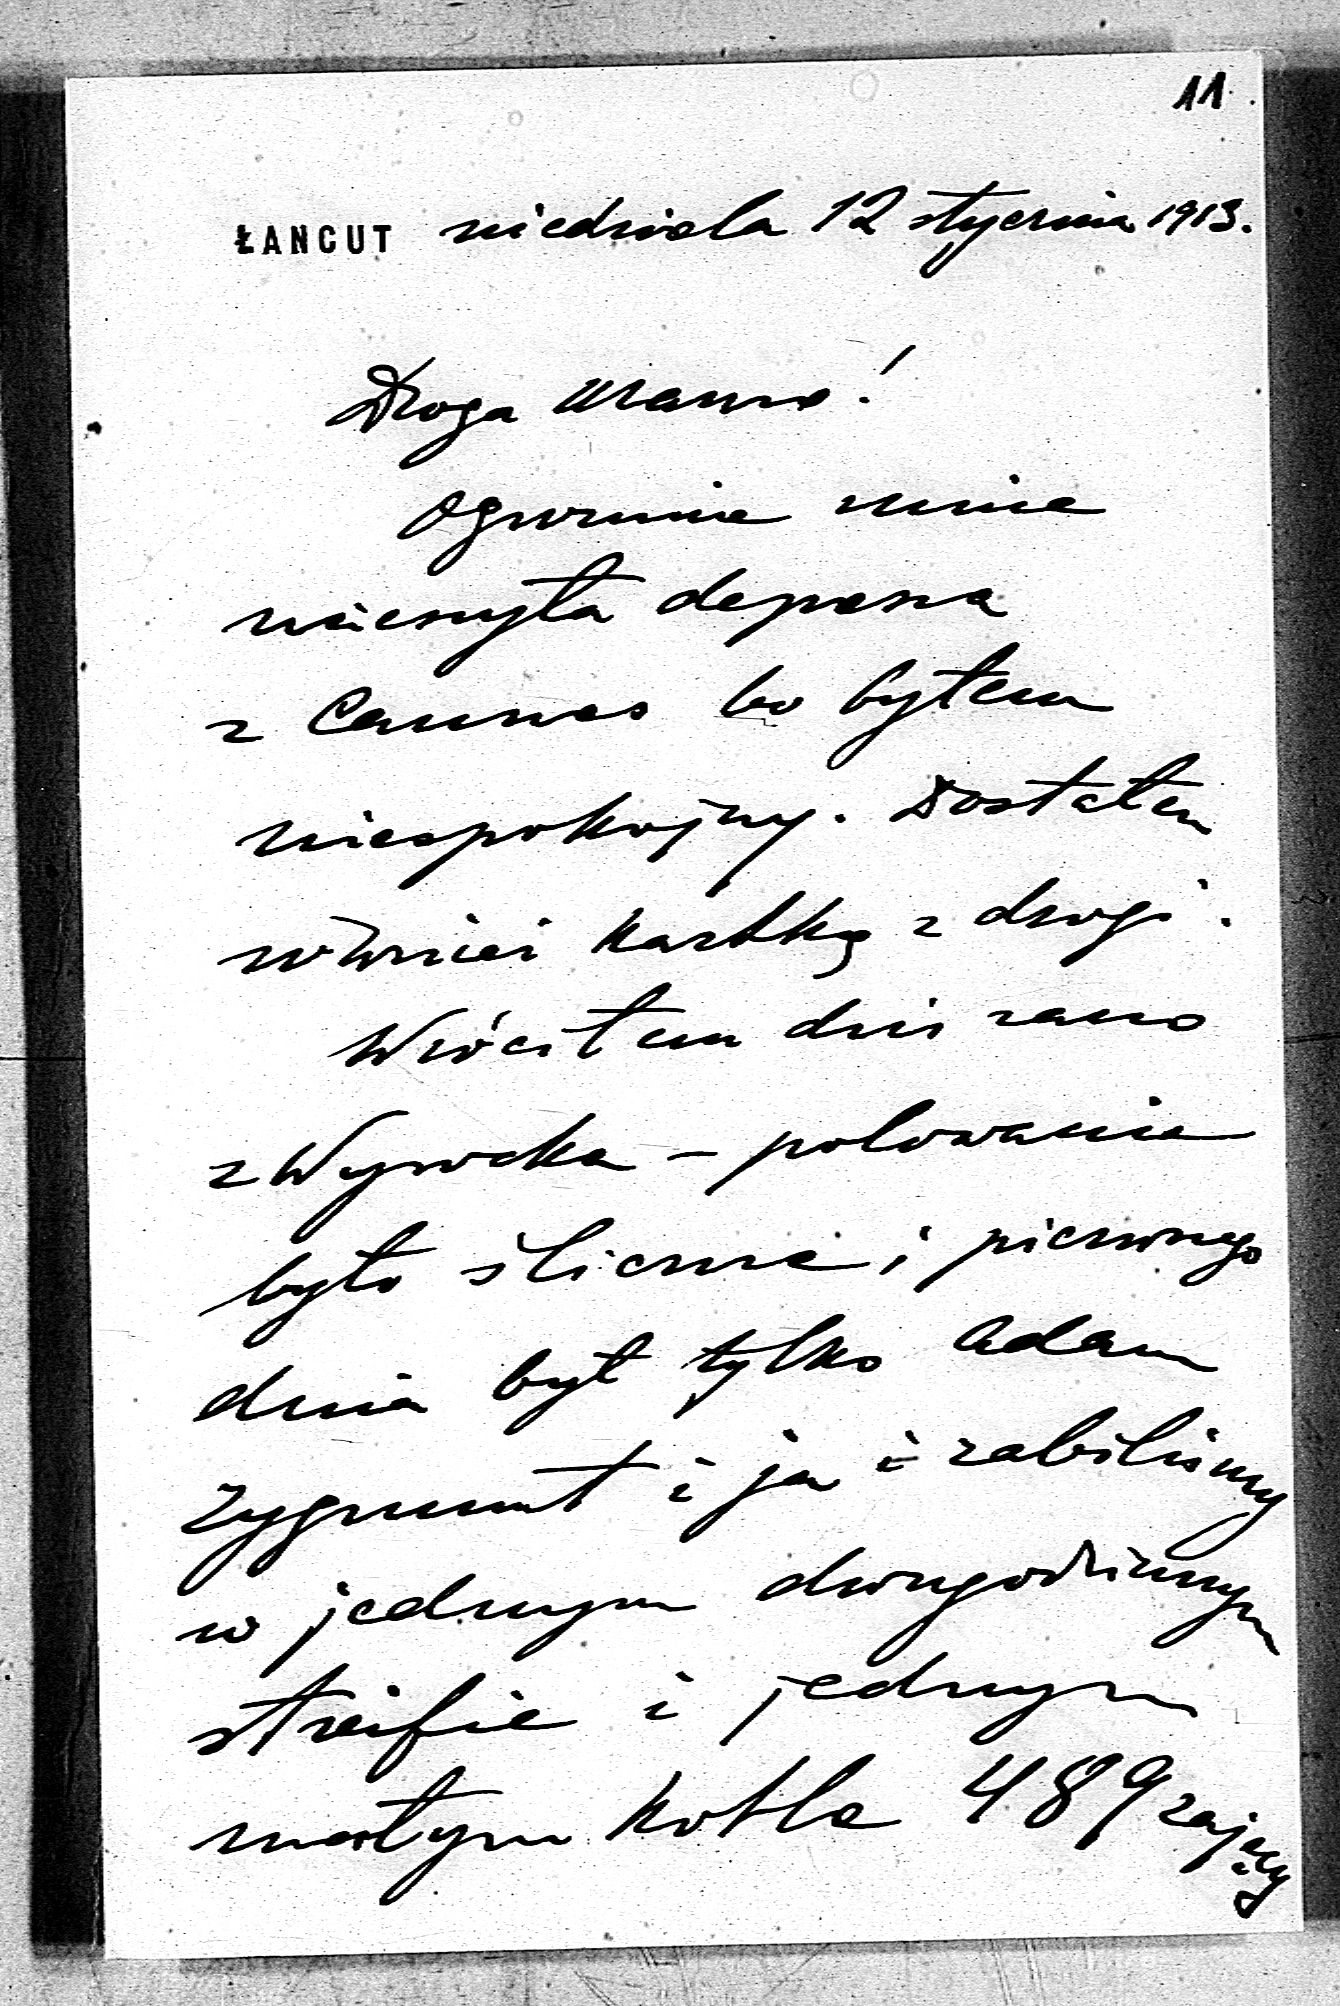 11.
ŁANCUT niedziela 12 stycznia 1913.
Droga Mamo!
Ogromnie mnie
ucieszyła depesza
z Cannes bo byłem
niespokojny. Dostałem
również kartkę z drogi.
Wróciłem dziś rano
z Wysocka – polowanie
było śliczne i pierwszego
dnia był tylko Adam
Zygmunt i ja i zabiliśmy
w jednym dwugodzinnym
streifie i jednym
małym kotle 489 zający